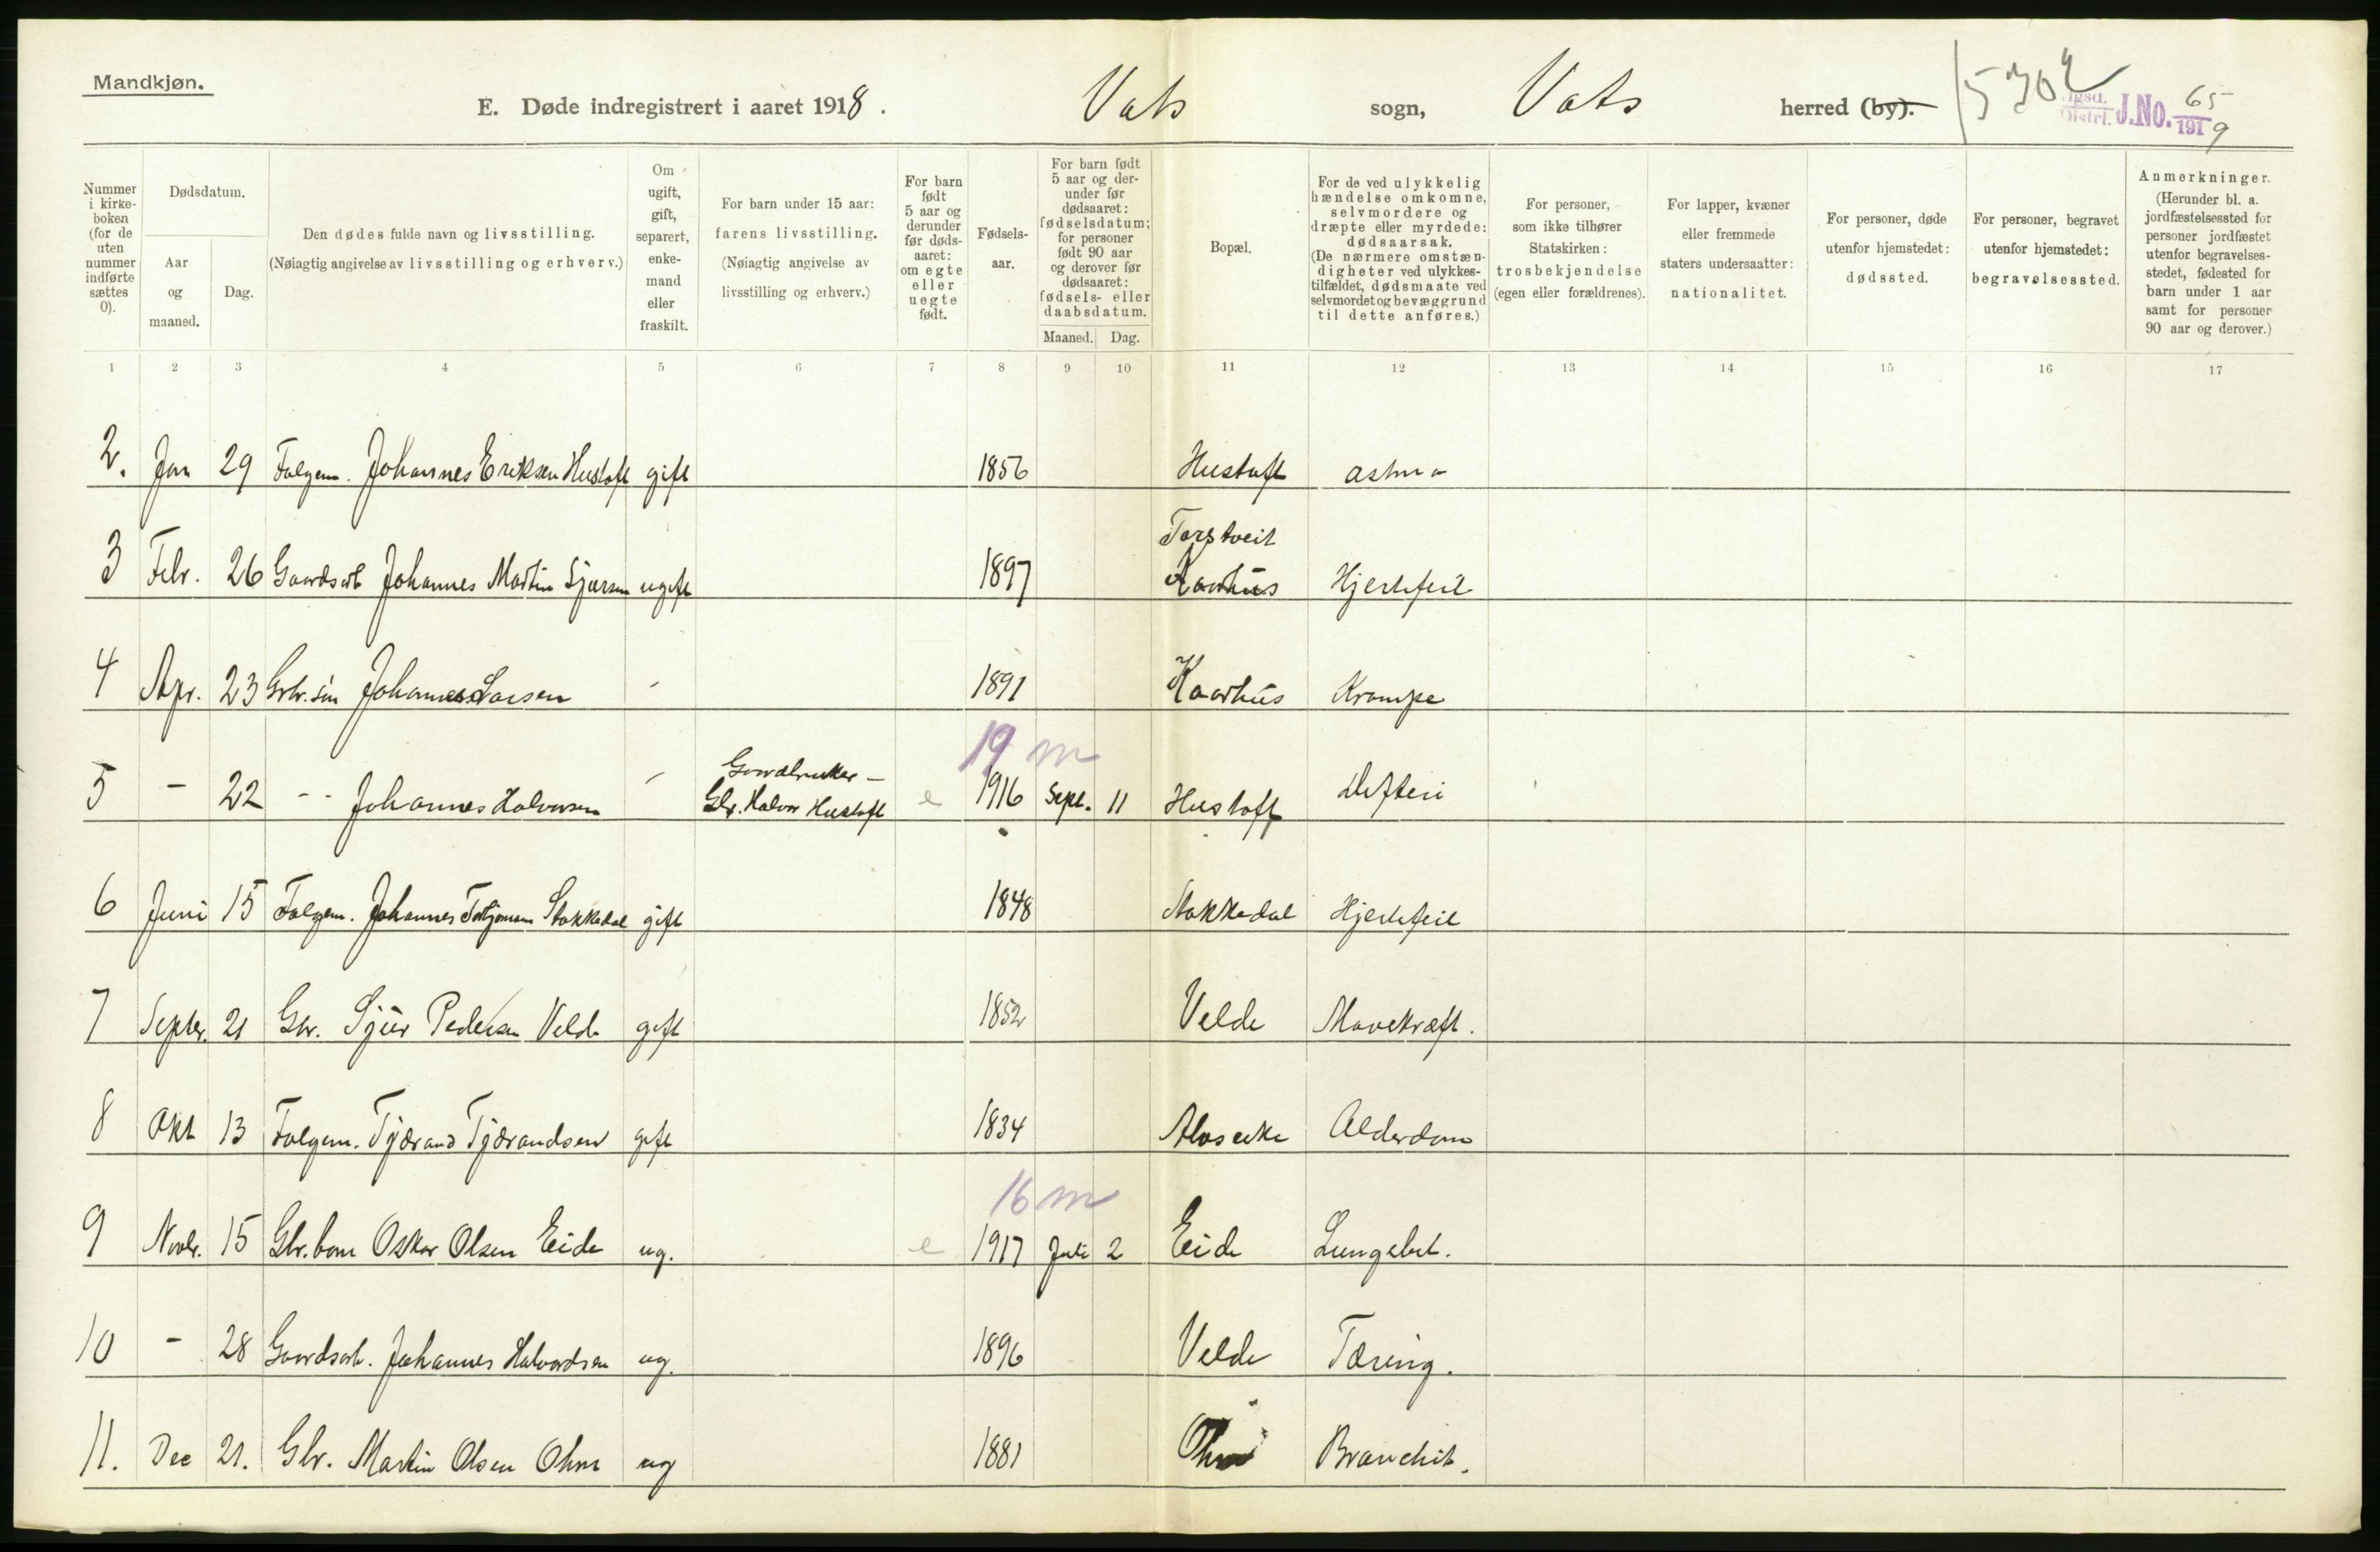 Mandkjøn.
E. Døde indregistrert i aaret 1918. Vats sogn, Vats herred (by). 5302
J.No. 65/1919
Nummer i kirkeboken (for de uten nummer indførte sættes 0).
Dødsdatum.
Aar og maaned.
Dag.
Den dødes fulde navn og livsstilling.
(Nøiagtig angivelse av livsstilling og erhverv.)
Om ugift, gift, separert, enkemand eller fraskilt.
For barn under 15 aar: farens livsstilling.
(Nøiagtig angivelse av livsstilling og erhverv.)
For barn født 5 aar og derunder før dødsaaret: om egte eller uegte født.
Fødselsaar.
For barn født 5 aar og derunder før dødsaaret: fødselsdatum; for personer født 90 aar og derover før dødsaaret: fødsels- eller daabsdatum.
Maaned. Dag.
Bopæl.
For de ved ulykkelig hændelse omkomne, selvmordere og dræpte eller myrdede: dødsaarsak.
(De nærmere omstændigheter ved ulykkestilfældet, dødsmaate ved selvmordet og bevæggrund til dette anføres.)
For personer, som ikke tilhører Statskirken: trosbekjendelse (egen eller forældrenes).
For lapper, kvæner eller fremmede staters undersaatter: nationalitet.
For personer, døde utenfor hjemstedet: dødssted.
For personer, begravet utenfor hjemstedet: begravelsessted.
Anmerkninger.
(Herunder bl. a. jordfæstelsessted for personer jordfæstet utenfor begravelsesstedet, fødested for barn under 1 aar samt for personer 90 aar og derover.)
1 2 3 4 5 6 7 8 9 10 11 12 13 14 15 16 17
2. Jan 29 Folgem. Johannes Eriksen Hustoft gift 1856 Hustoft astma
Torstveit
3 Febr. 26 Gaardsarb Johannes Martin Sjursen ugift 1897 Kaarhus Hjertefeil
4 Apr. 23 Gbr. søn Johannes Larsen - 1891 Kaarhus Krampe
19 m
Gaardbruker -
5 - 22 - - Johannes Halvorsen - Gbr. Halvor Hustoft e 1916 Sept. 11 Hustoft Difteri
6 Juni 15 Folgem. Johannes Stokkadal gift 1848 Stokkadal Hjertefeil
7 Septbr. 21 Gbr. Sjur Pedersen Velde gift 1852 Velde Mavekræft.
8 Okt 13 Folgem. Tjærand Tjærandsen gift 1834 Alderdom
16 m
9 Novbr. 15 Gbr. barn Oskar Olsen Eide ug. e 1917 Juli 2 Eide Lungebet.
10 - 28 Gaardsarb. Johannes Halvardsen ug. 1896 Velde Tæring.
11. Dec 21. Gbr. Martin Olsen Ohm ug 1881 Ohm Bronchit.